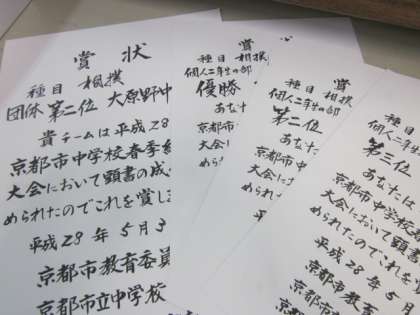 賞状
種目 相撲
団体 第二位 大原野中
貴チームは平成28
京都市中学校春季総
大会において頭書の成
められたのでこれを賞しま
平成28年5月3
京都市教育委員
京都市立中学校
賞
種目 相撲
個人二年生の部
優勝
あなたは
京都市
大会に
められ
平
京
賞
種目 相撲
個人二年生の部
第二位
あなた
京都市中
大会に
められた
平成
京都
京
賞
種目 相撲
個人二年生の部
第三位
あなたは
京都市中学校春
大会において頭
められたのでこれ
平成28年5
京都市教育
京都市立